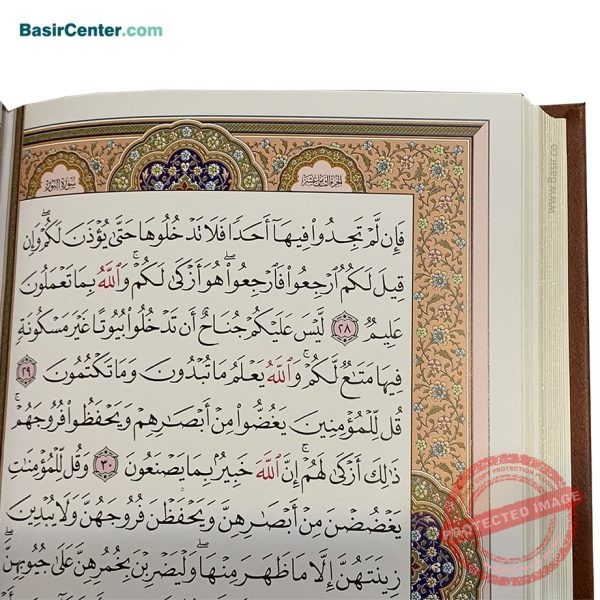 BasirCenter.com
سورة النور
الجزء الثامن عشر
فَإِن لَّمْ تَجِدُوا۟ فِيهَآ أَحَدًا فَلَا تَدْخُلُوهَا حَتَّىٰ يُؤْذَنَ لَكُمْ ۖ وَإِن
قِيلَ لَكُمُ ٱرْجِعُوا۟ فَٱرْجِعُوا۟ ۖ هُوَ أَزْكَىٰ لَكُمْ ۚ وَٱللَّهُ بِمَا تَعْمَلُونَ
عَلِيمٌ ﴿٢٨﴾ لَّيْسَ عَلَيْكُمْ جُنَاحٌ أَن تَدْخُلُوا۟ بُيُوتًا غَيْرَ مَسْكُونَةٍ
فِيهَا مَتَٰعٌ لَّكُمْ ۚ وَٱللَّهُ يَعْلَمُ مَا تُبْدُونَ وَمَا تَكْتُمُونَ ﴿٢٩﴾
قُل لِّلْمُؤْمِنِينَ يَغُضُّوا۟ مِنْ أَبْصَٰرِهِمْ وَيَحْفَظُوا۟ فُرُوجَهُمْ ۚ
ذَٰلِكَ أَزْكَىٰ لَهُمْ ۗ إِنَّ ٱللَّهَ خَبِيرٌۢ بِمَا يَصْنَعُونَ ﴿٣٠﴾ وَقُل لِّلْمُؤْمِنَٰتِ
يَغْضُضْنَ مِنْ أَبْصَٰرِهِنَّ وَيَحْفَظْنَ فُرُوجَهُنَّ وَلَا يُبْدِينَ
زِينَتَهُنَّ إِلَّا مَا ظَهَرَ مِنْهَا ۖ وَلْيَضْرِبْنَ بِخُمُرِهِنَّ عَلَىٰ جُيُوبِهِنَّ ۖ
www.Basir.co
PROTECTED IMAGE